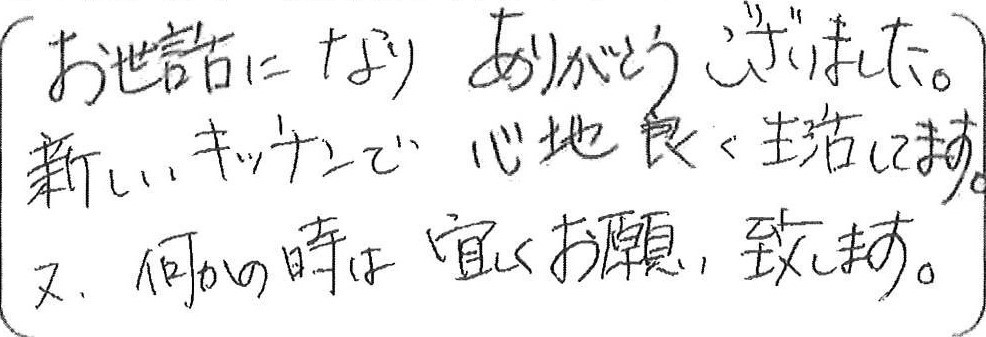 お世話になり ありがとうございました。
新しいキッチンで 心地良く生活してます。
又、何かの時は 宜しくお願い致します。